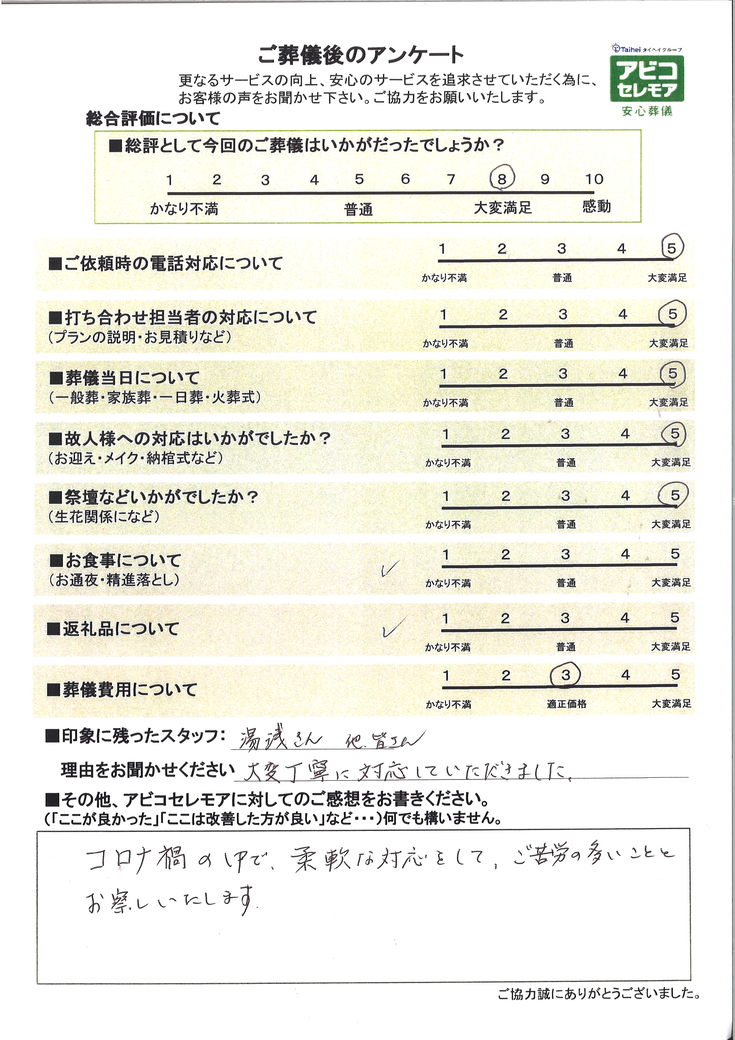 ご葬儀後のアンケート
Taihei タイヘイグループ
アビコ
セレモア
安心葬儀
更なるサービスの向上、安心のサービスを追求させていただく為に、
お客様の声をお聞かせ下さい。ご協力をお願いいたします。
総合評価について
■総評として今回のご葬儀はいかがだったでしょうか？
1 2 3 4 5 6 7 8 9 10
かなり不満 普通 大変満足 感動
■ご依頼時の電話対応について 1 2 3 4 5
かなり不満 普通 大変満足
■打ち合わせ担当者の対応について 1 2 3 4 5
(プランの説明・お見積りなど) かなり不満 普通 大変満足
■葬儀当日について 1 2 3 4 5
(一般葬・家族葬・一日葬・火葬式) かなり不満 普通 大変満足
■故人様への対応はいかがでしたか？ 1 2 3 4 5
(お迎え・メイク・納棺式など) かなり不満 普通 大変満足
■祭壇などいかがでしたか？ 1 2 3 4 5
(生花関係になど) かなり不満 普通 大変満足
■お食事について 1 2 3 4 5
(お通夜・精進落とし) かなり不満 普通 大変満足
■返礼品について 1 2 3 4 5
かなり不満 普通 大変満足
■葬儀費用について 1 2 3 4 5
かなり不満 適正価格 大変満足
■印象に残ったスタッフ： 湯浅さん 他、皆さん
理由をお聞かせください 大変丁寧に対応していただきました。
■その他、アビコセレモアに対してのご感想をお書きください。
(「ここが良かった」「ここは改善した方が良い」など・・・)何でも構いません。
コロナ禍の中で、柔軟な対応をして、ご苦労の多いことと
お察しいたします。
ご協力誠にありがとうございました。